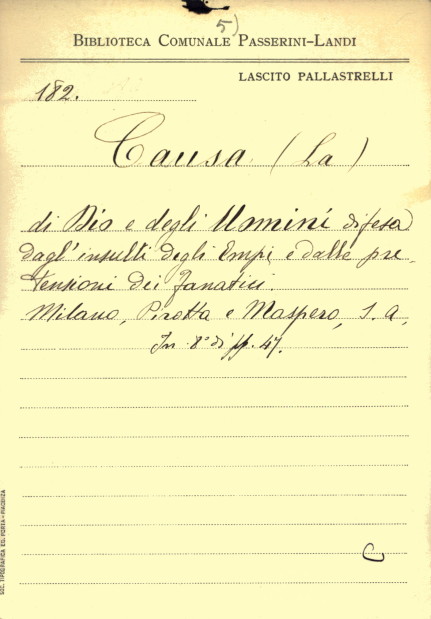 5)
BIBLIOTECA COMUNALE PASSERINI-LANDI
LASCITO PALLASTRELLI
182.
Causa (La)
di Dio e degli Uomini difesa
dagl'insulti degli Empi e dalle pre-
tensioni dei fanatici.
Milano, Pirotta e Maspero, S. a,
In 8° di pp. 47.
C
SOC. TIPOGRAFICA ED. PORTA-PIACENZA